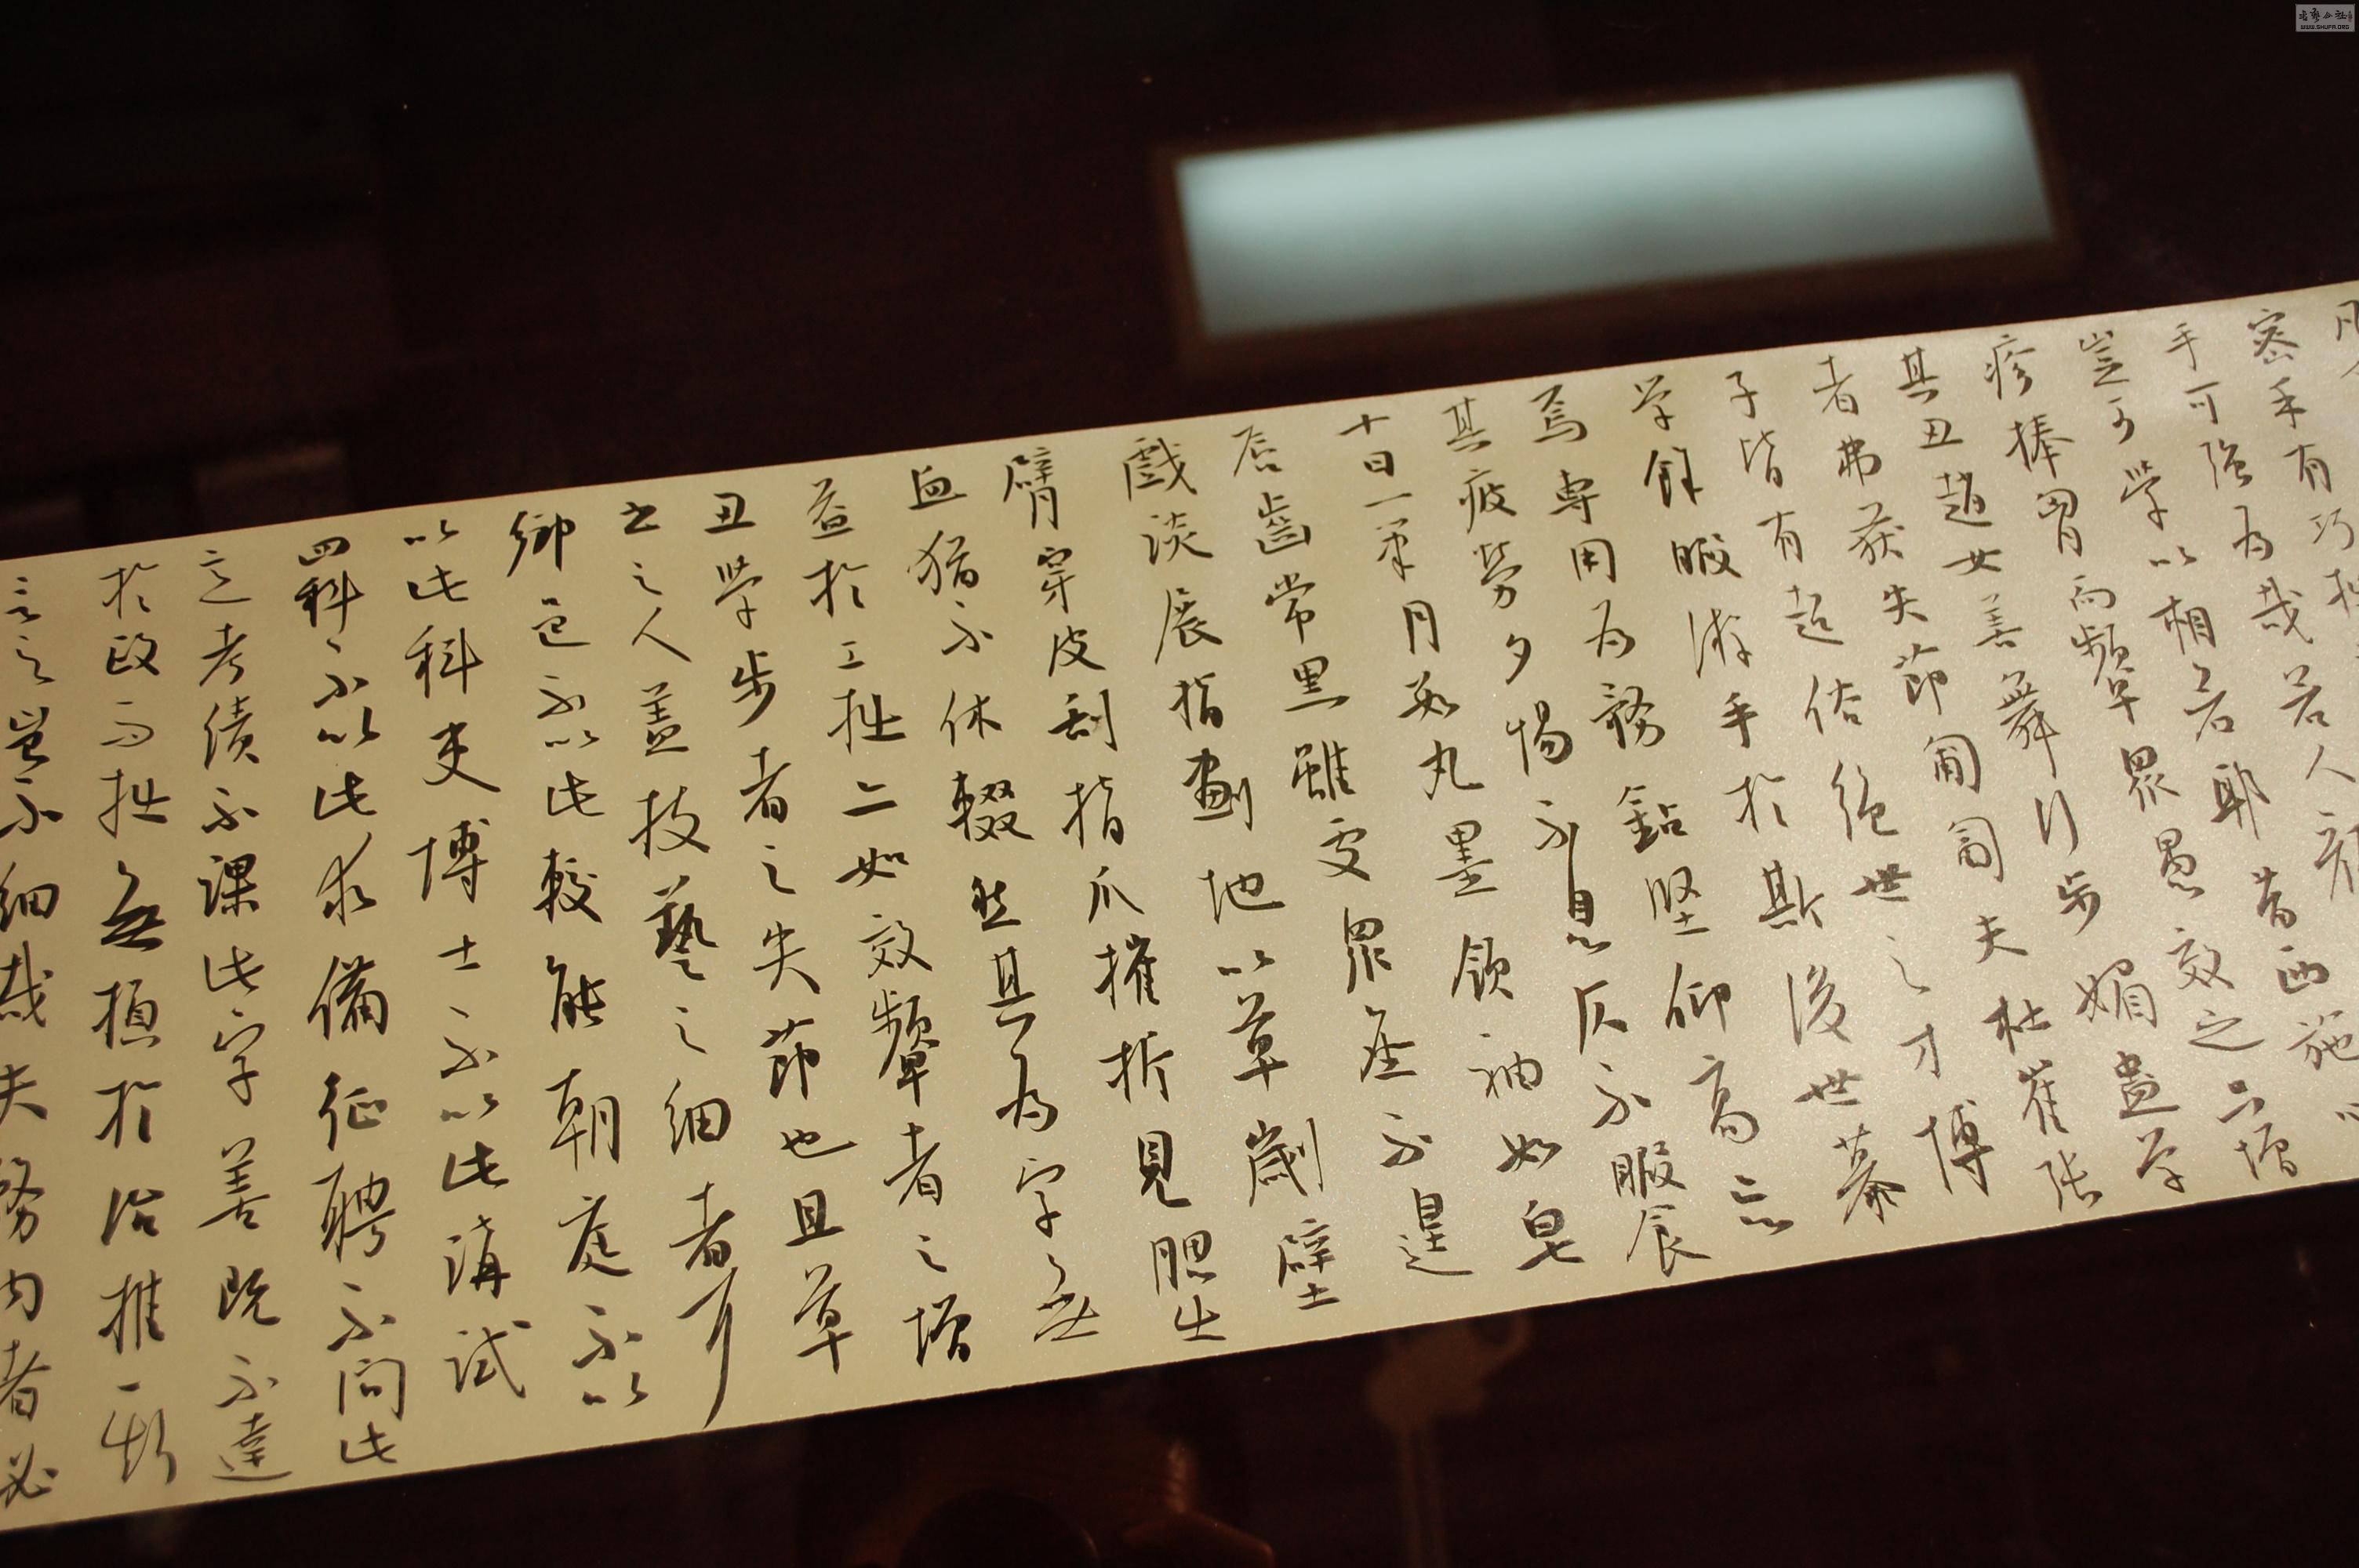 密手有巧
手可強為哉若人
豈可學以相若耶昔西施
疹捧胸而顰眾愚效之只增
其丑趙女善舞行步媚蠱學
者弗获失節匍匐夫杜崔張
子皆有超俗絕世之才博
学餘暇游手於斯後世慕
焉專用為務鉆堅仰高忘
其疲勞夕惕不息仄不暇食
十日一筆月數丸墨領袖如皂
唇齒常黑雖處眾座不遑
戲談展指劃地以草劌壁
臂穿皮刮指爪摧折見腮出
血猶不休輟然其為字無
益於工拙亦如效顰者之增
丑學步者之失節也且草
书之人蓋技藝之細者耳
鄉邑不以此較能朝庭不以
以此科吏博士不以此講試
四科不以此求備征聘不問此
意考績不課此字善既不達
於政而拙無損於治推斯
言之豈不細哉夫務內者必
书艺公社
WWW.SHUFA.ORG